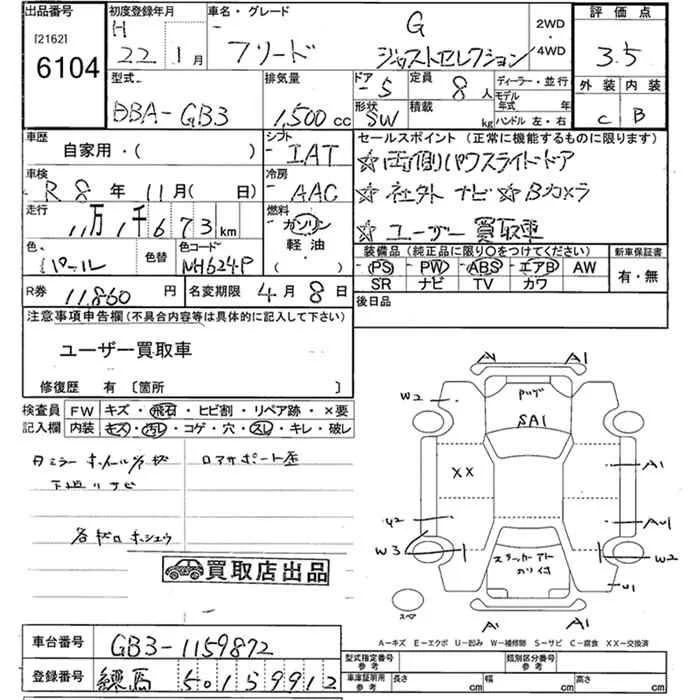 出品番号
[2162]
6104
初度登録年月
H 22 年 1 月
車名・グレード
フリード
G
ジャストセレクション
2WD
・
4WD
評価点
3.5
外装 内装
C B
型式
DBA-GB3
排気量
1,500 cc
ドア
- 5
定員
8 人
ディーラー・並行
モデル年式 年
形状
SW
積載
kg
ハンドル 左・右
車歴
自家用・( )
シフト
IAT
セールスポイント (正常に機能するものに限ります)
☆両側パワスライドドア
☆社外 ナビ ☆Bカメラ
☆ユーザー買取車
車検
R 8 年 11 月( 日)
冷房
AAC
走行
11万1千673 km
燃料
ガソリン
軽油
( ・ )
色
パール
色替
色コード
NH624P
装備品 (純正品に限り○をつけてください)
PS PW ABS エアB AW
SR ナビ TV カワ
新車保証書
有・無
R券 11,860 円
名変期限 4 月 8 日
後日品
注意事項申告欄(不具合内容等は具体的に記入して下さい)
ユーザー買取車
修復歴 有 〔箇所 〕
検査員 FW キズ・飛石・ヒビ割・リペア跡・×要
記入欄 内装 キズ・汚レ・コゲ・穴・スレ・キレ・破レ
下廻りサビ
買取店出品
A1
W2
SA1
XX
A1
W3
W2
U1
A1
スペア
A-キズ E-エクボ U-凹み W-補修跡 S-サビ C-腐食 XX-交換済
車台番号 GB3-1159872
登録番号 練馬 501 5 9912
型式指定番号
参考
類別区分番号
参考
車庫証明用
参考
長さ cm 幅 cm 高さ cm